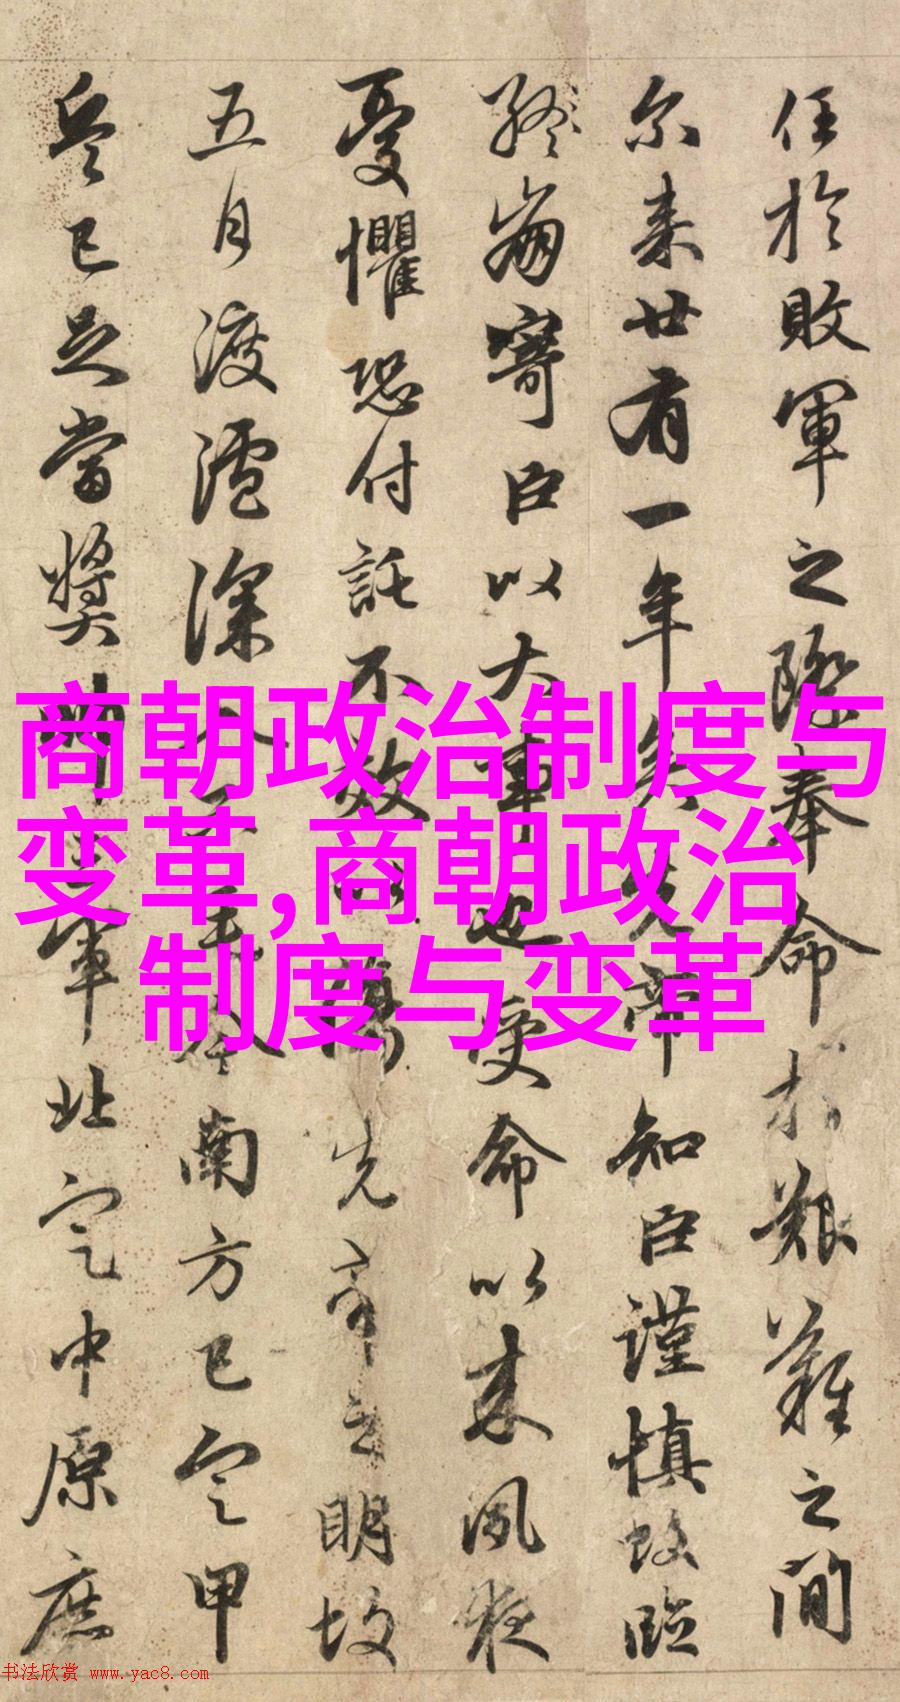 任於敗軍之際奉命於艱難之間
尔来廿有一年矣先帝知臣謹慎故臨
終崩寄臣以大事也受命以来夙夜
憂懼恐付託不效以傷先帝之明故
五月渡瀘深入不毛今南方已定甲
兵已足當獎帥三軍北定中原庶
商朝政治制度与
变革,商朝政治
制度与变革
书法欣赏 www.yac8.com